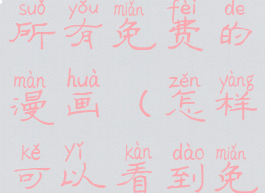 suǒ yǒu miǎn fèi de
所有免费的
màn huà zěn yàng
漫画（怎样
kě yǐ kàn dào miǎn
可以看到免